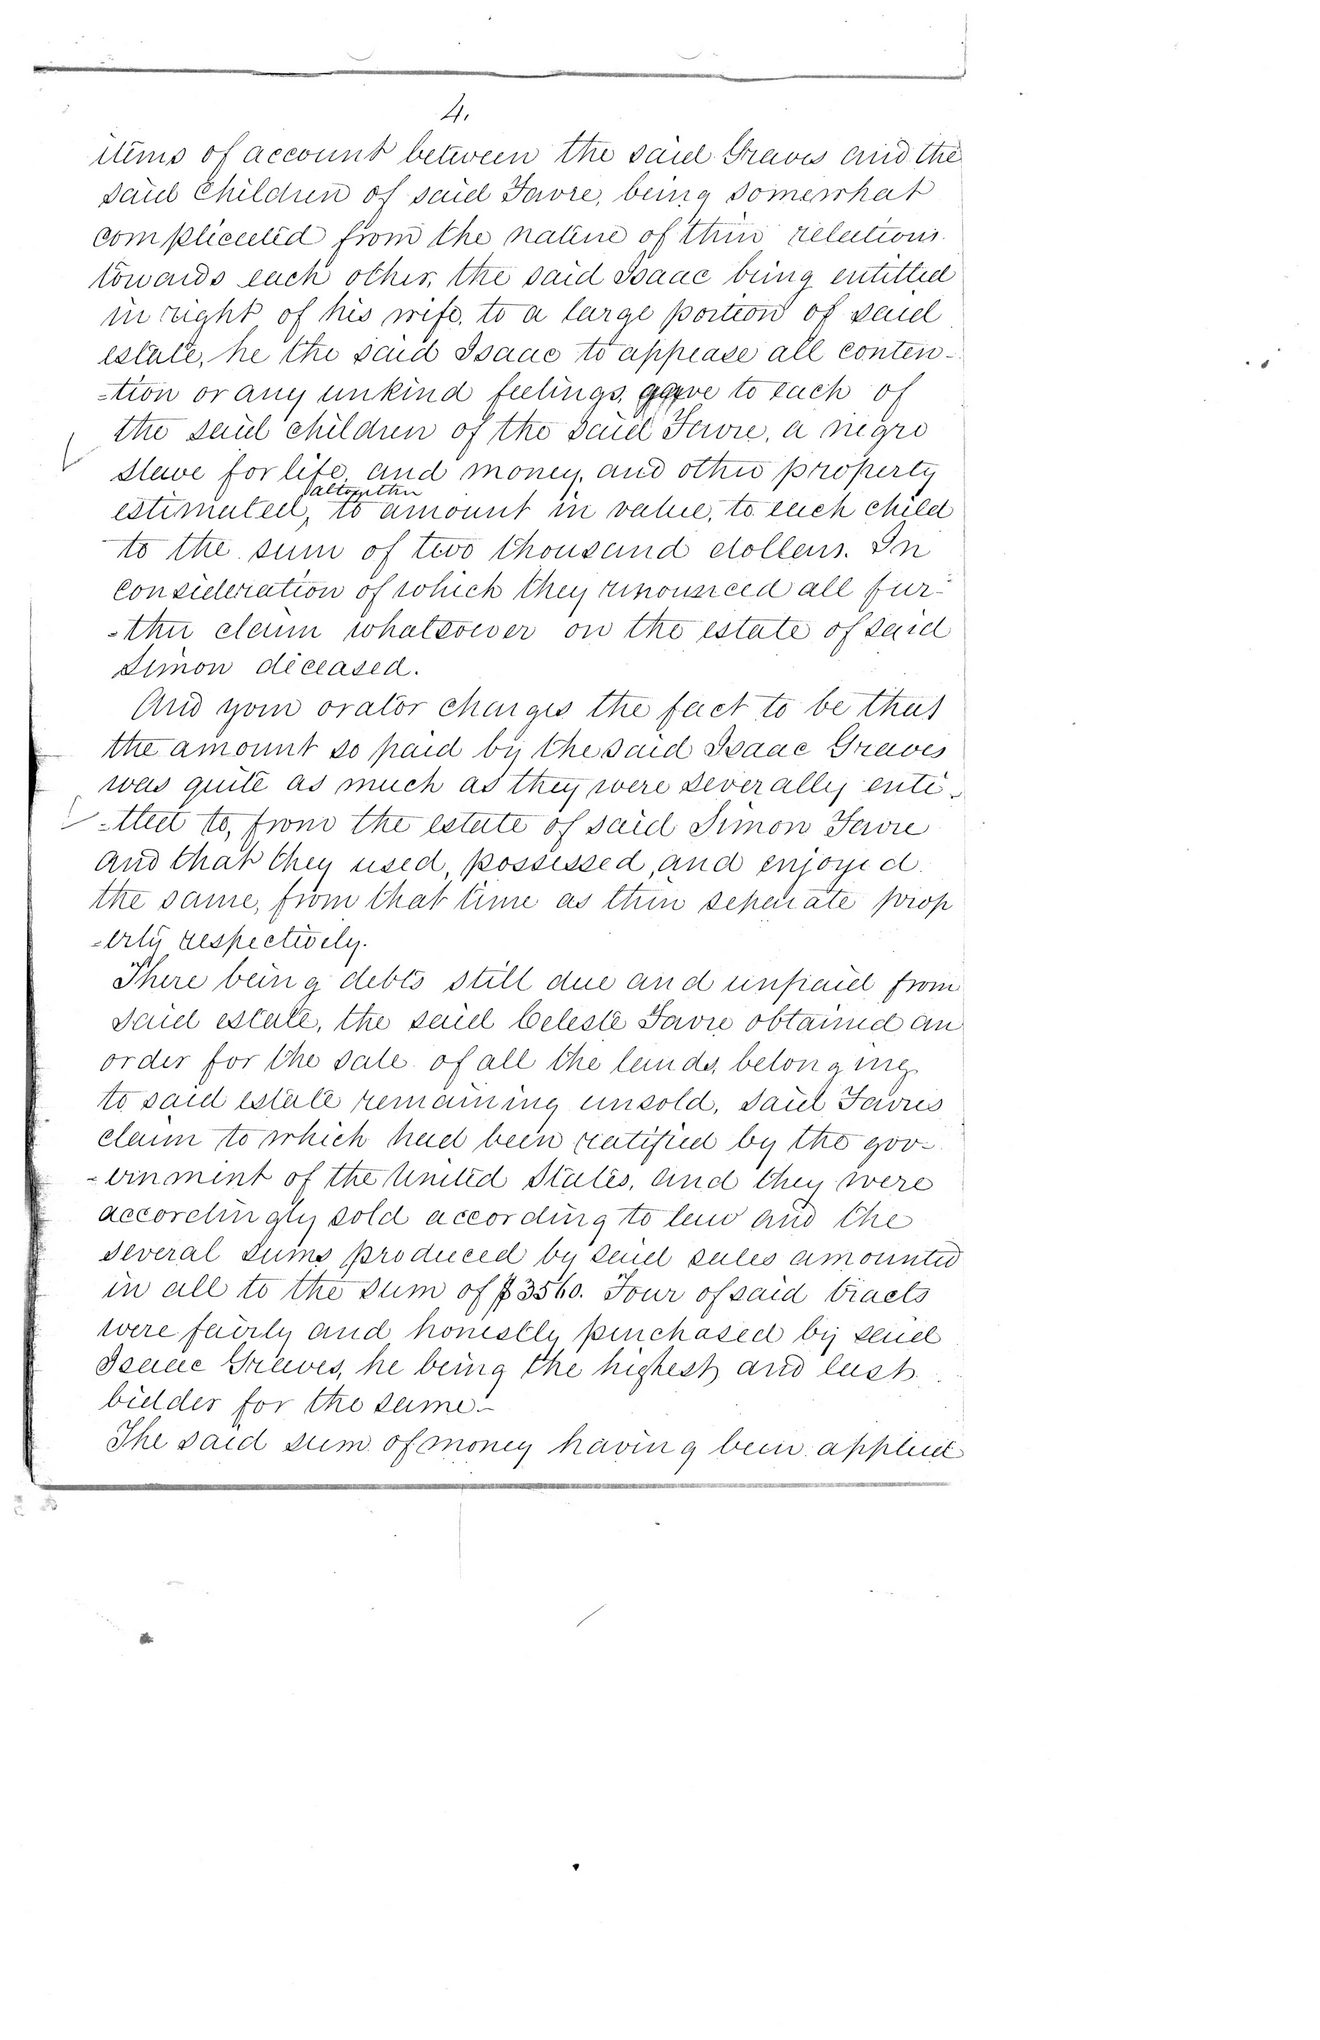 4.
items of account between the said Graves and the
said children of said Favre, being somewhat
complicated from the nature of their relations
towards each other, the said Isaac being entitled
in right of his wife, to a large portion of said
estate, he the said Isaac to appease all conten-
-tion or any unkind feelings, gave to each of
the said children of the said Favre, a negro
slave for life, and money, and other property
estimated, altogether to amount in value, to each child
to the sum of two thousand dollars. In
consideration of which they renounced all fur-
-ther claim whatsoever on the estate of said
Simon deceased.
And your orator charges the fact to be that
the amount so paid by the said Isaac Graves
was quite as much as they were severally enti-
-tled to, from the estate of said Simon Favre
and that they used, possessed, and enjoyed
the same, from that time as their separate prop
-erty respectively.
There being debts still due and unpaid from
said estate, the said Celeste Favre obtained an
order for the sale of all the lands, belonging
to said estate remaining unsold, said Favres
claim to which had been ratified by the gov-
-ernment of the United States, and they were
accordingly sold according to law and the
several sums produced by said sales amounted
in all to the sum of $3560. Four of said tracts
were fairly and honestly purchased by said
Isaac Graves, he being the highest, and last
bidder for the same.-
The said sum of money having been applied